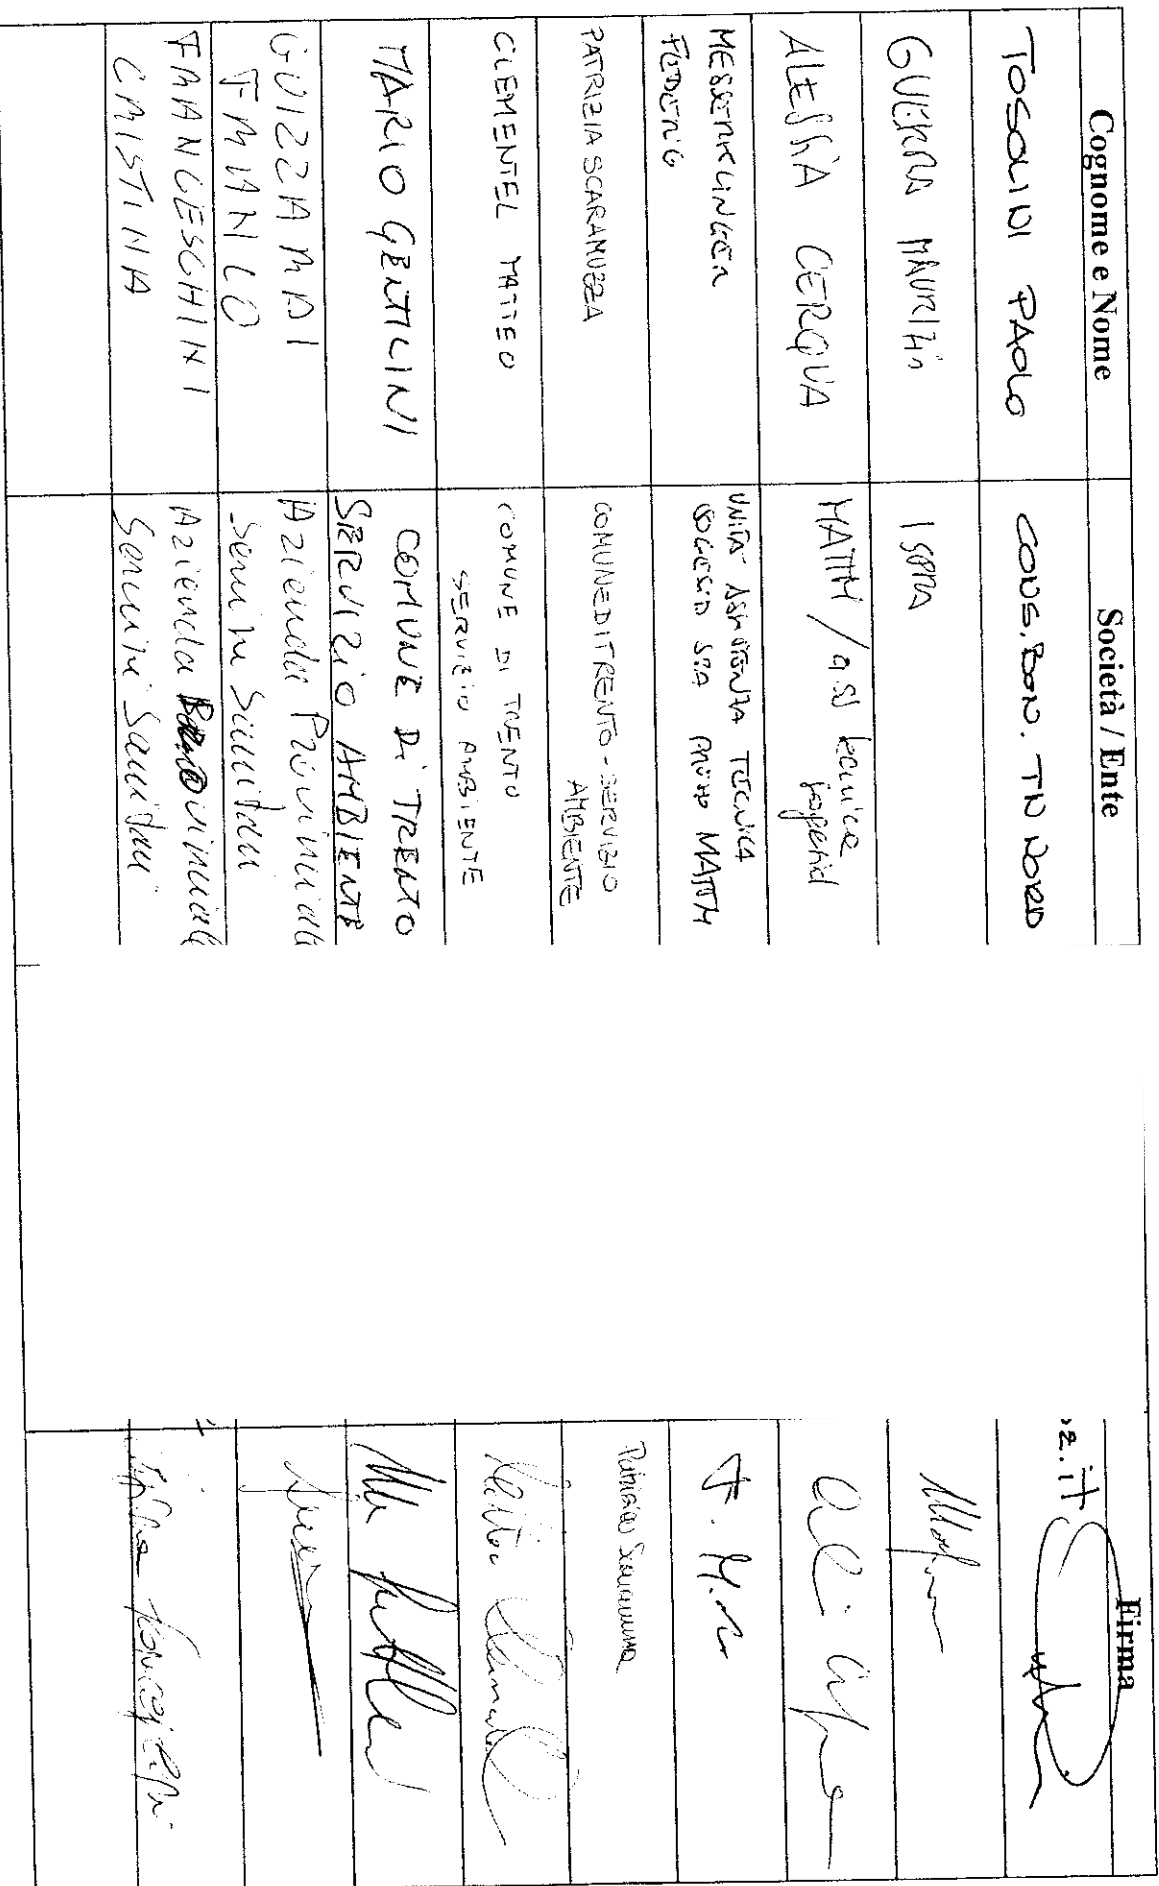 Cognome e Nome Società / Ente Firma
TOSOLINI PAOLO CONS. BON. TN NORD oz.it
GUERRA MAURIZIO ISPRA
ALESSIA CERQUA MATTM / a.s. tecnica
MESSERKLINGER UNITÀ ASSISTENZA TECNICA F. M.
FEDERICO SOGESID SPA PRESSO MATTM
PATRIZIA SCARAMUZZA COMUNE DI TRENTO - SERVIZIO Patrizia Scaramuzza
AMBIENTE
CLEMENTEL MATTEO COMUNE DI TRENTO
SERVIZIO AMBIENTE
MARIO GENTILINI COMUNE DI TRENTO
SERVIZIO AMBIENTE
GUIZZARDI Azienda Provinciale
FRANCO Servizi Sanitari
FRANCESCHINI Azienda Provinciale
CRISTINA Servizi Sanitari